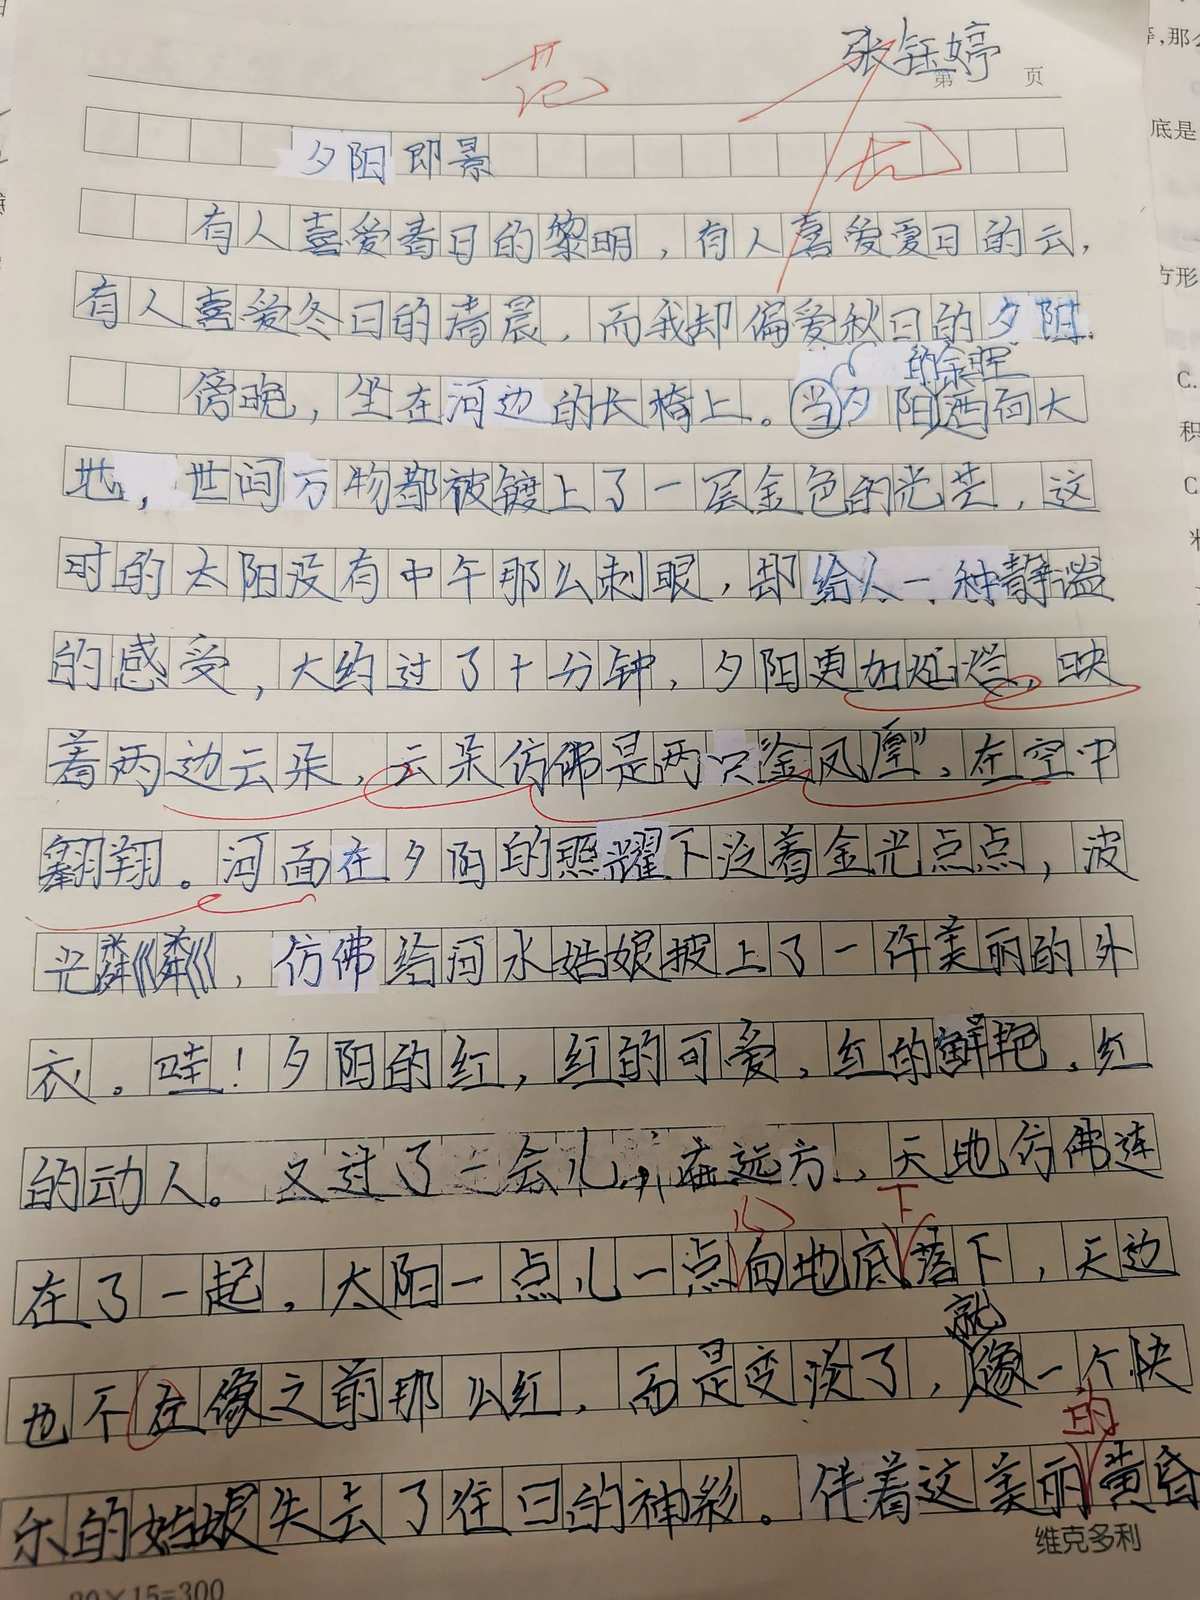 张钰婷
范
第 页
夕阳即景
有人喜爱春日的黎明，有人喜爱夏日的云，
有人喜爱冬日的清晨，而我却偏爱秋日的夕阳.
的余晖
傍晚，坐在河边的长椅上。当夕阳洒向大
地，世间万物都被镀上了一层金色的光芒，这
时的太阳没有中午那么刺眼，却给人一种静谧
的感受，大约过了十分钟，夕阳更加灿烂，映
着两边云朵，云朵仿佛是两只“金凤凰”，在空中
翱翔。河面在夕阳的照耀下泛着金光点点，波
光粼粼，仿佛给河水姑娘披上了一件美丽的外
衣。哇！夕阳的红，红的可爱，红的鲜艳，红
的动人。又过了一会儿，在远方，天地仿佛连
儿 下
在了一起，太阳一点儿一点向地底落下，天边
就
也不在像之前那么红，而是变淡了，像一个快
的
乐的姑娘失去了往日的神彩。伴着这美丽黄昏
维克多利
20×15=300
底是
方形
C.
积
C